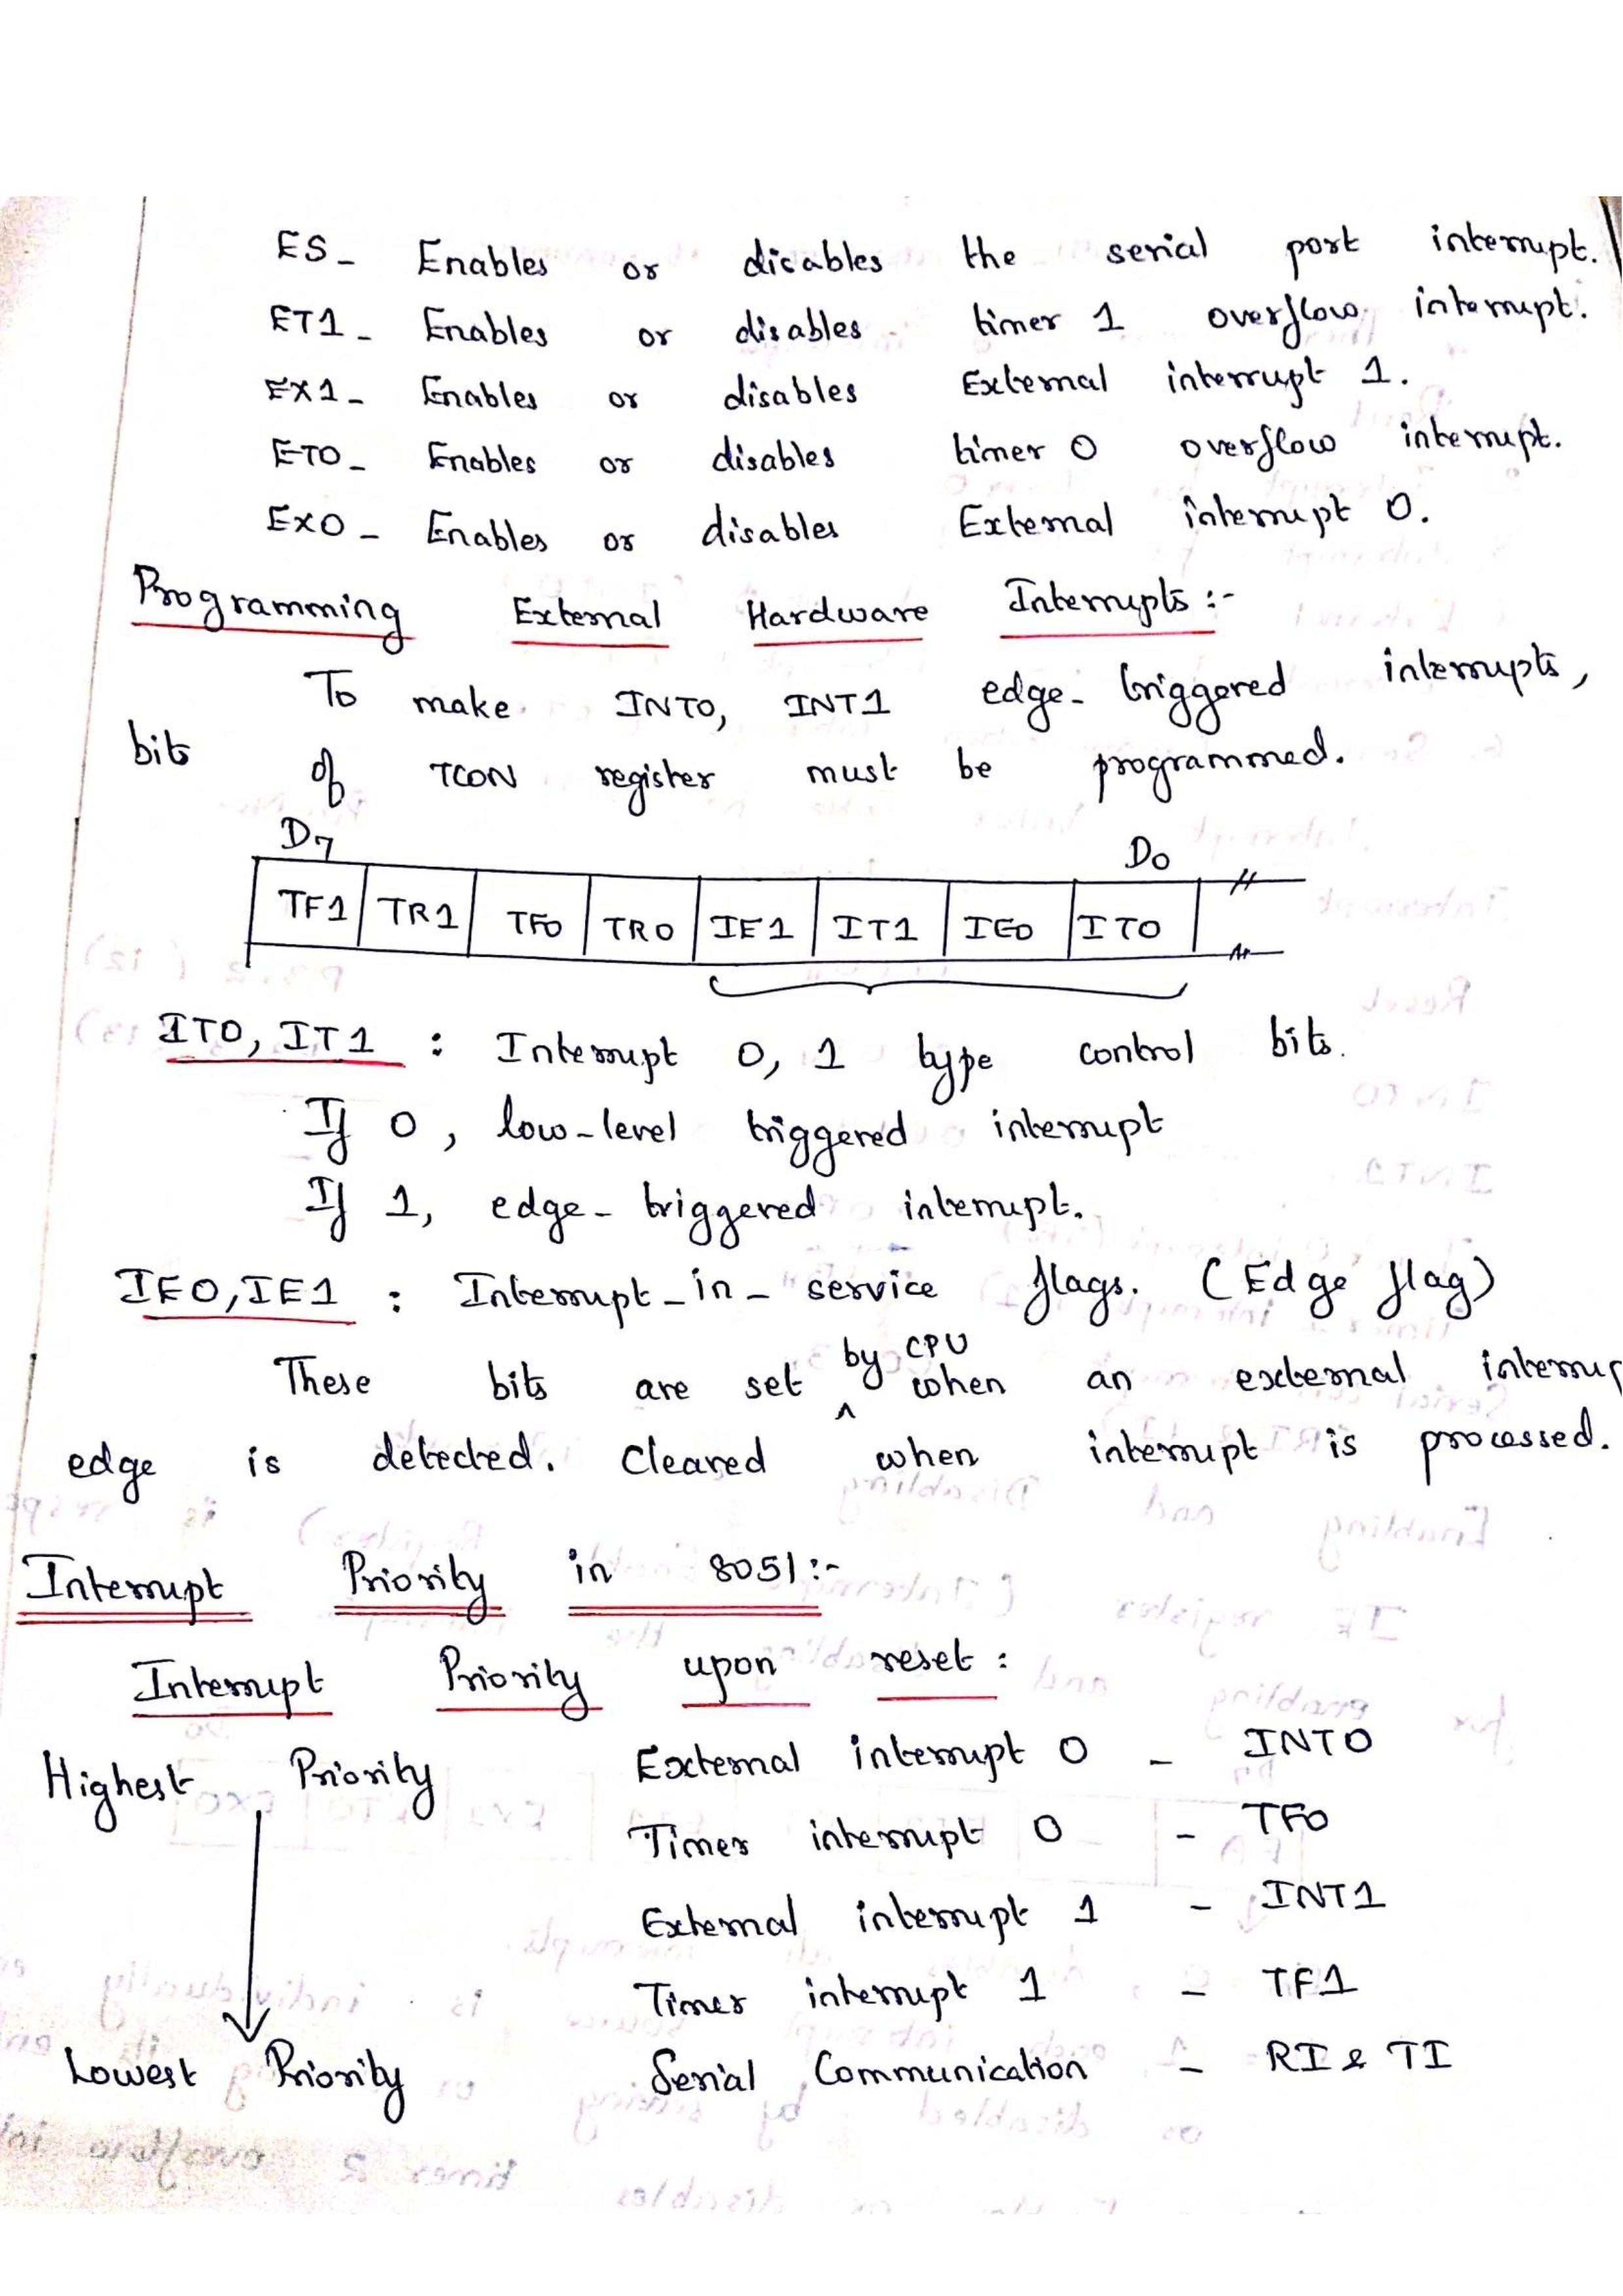 ES - Enables or disables the serial port interrupt.
ET1 - Enables or disables timer 1 overflow interrupt.
EX1 - Enables or disables External interrupt 1.
ET0 - Enables or disables timer 0 overflow interrupt.
EX0 - Enables or disables External interrupt 0.
Programming External Hardware Interrupts :-
To make INT0, INT1 edge-triggered interrupts,
bits of TCON register must be programmed.
D7 D0
TF1 TR1 TF0 TR0 IE1 IT1 IE0 IT0
IT0, IT1 : Interrupt 0, 1 type control bits.
If 0, low-level triggered interrupt
If 1, edge-triggered interrupt.
IE0, IE1 : Interrupt-in-service flags. (Edge flag)
These bits are set by CPU when an external interrup
edge is detected. Cleared when interrupt is processed.
Interrupt Priority in 8051 :-
Interrupt Priority upon reset :
Highest Priority External interrupt 0 - INT0
Timer interrupt 0 - TF0
External interrupt 1 - INT1
Timer interrupt 1 - TF1
Lowest Priority Serial Communication - RI & TI